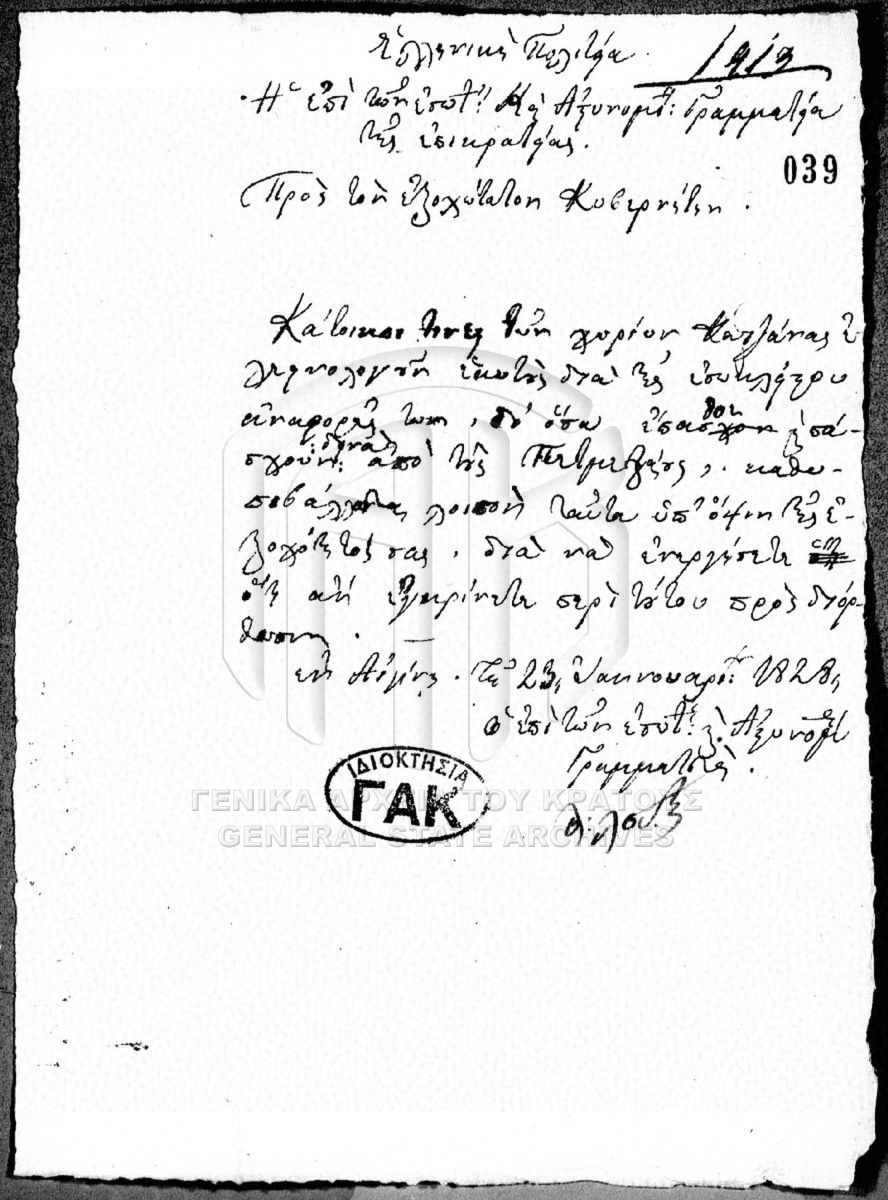 Ἑλληνικὴ Πολιτεία.
1913
Ἡ ἐπὶ τῶν ἐσωτ: καὶ Ἀστυνομί: Γραμματεία
τῆς ἐπικρατείας.
039
Πρὸς τὸν ἐξοχώτατον Κυβερνήτην.
Κάτοικοι τινες τῶν χωρίων
διὰ τῆς ἐγκλείστου
ἀναφορᾶς των, δι' ὅσα ἔπαθον ἢ πά-
σχουν ἀπὸ τοὺς, καθυ-
ποβάλλονται λοιπὸν ταῦτα ὑπ' ὄψιν τῆς ἐ-
ξοχότητός σας, διὰ νὰ ἐνεργήσετε
ὅ,τι ἂν ἐγκρίνετε περὶ τούτου πρὸς διόρ-
θωσιν. —
ἐν Αἰγίνῃ. τῇ 23, Ἰαννουαρί: 1828,
ὁ ἐπὶ τῶν ἐσωτ: καὶ Ἀστυνομί
Γραμματεὺς.
ΙΔΙΟΚΤΗΣΙΑ
ΓΑΚ
ΓΕΝΙΚΑ ΑΡΧΕΙΑ ΤΟΥ ΚΡΑΤΟΥΣ
GENERAL STATE ARCHIVES